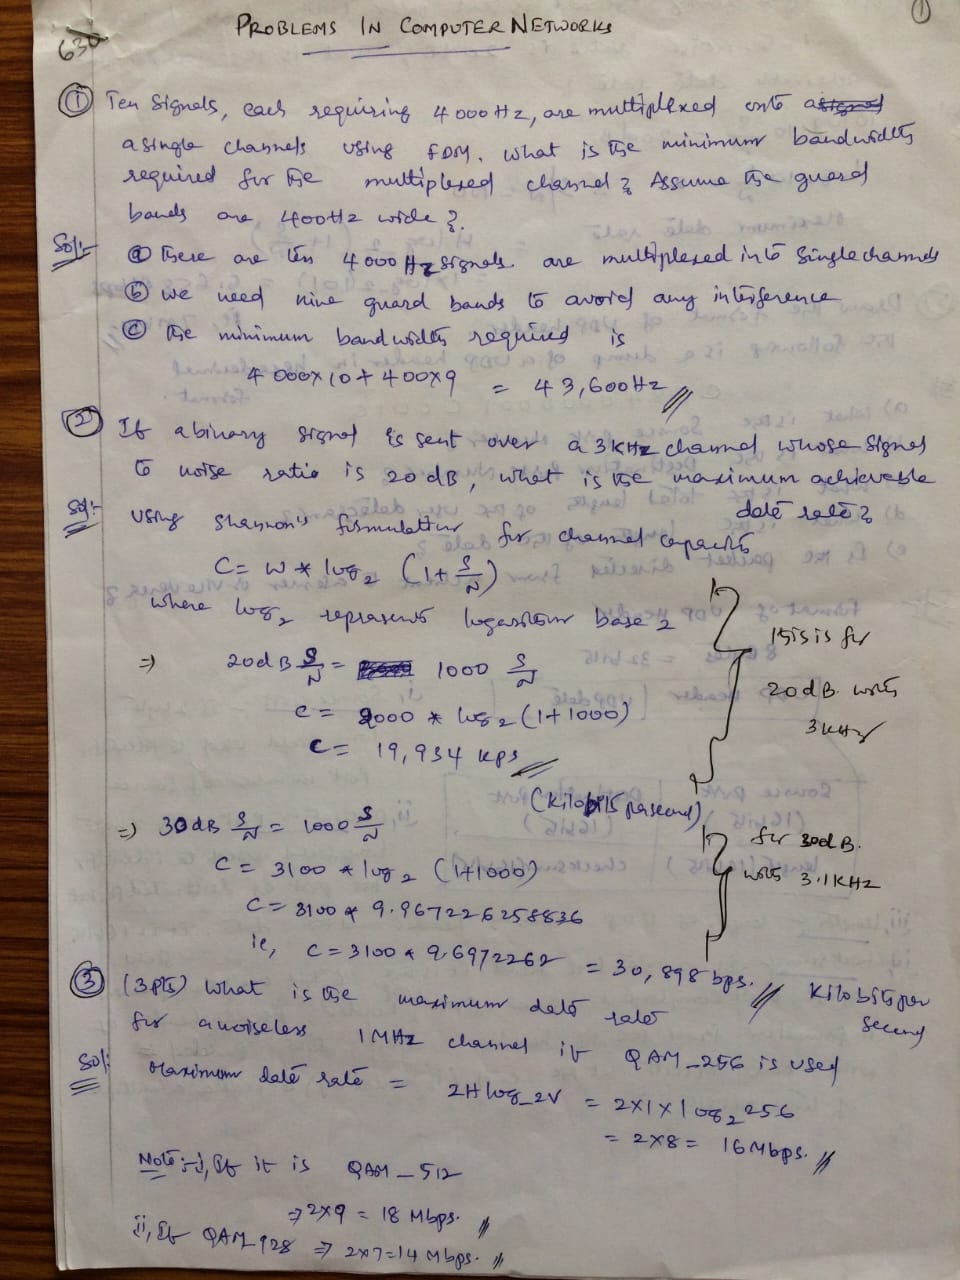 PROBLEMS IN COMPUTER NETWORKS
①
630
① Ten Signals, each requiring 4000Hz, are multiplexed onto
a single channels using FDM. What is the minimum bandwidth
required for the multiplexed channel? Assume the guard
bands are 400Hz wide?
Sol:-
ⓐ There are ten 4000 Hz signals are multiplexed into Single channels
ⓑ we need nine guard bands to avoid any interference
ⓒ The minimum bandwidth required is
4000x10+400x9 = 43,600Hz
② If a binary signal is sent over a 3KHz channel whose signal
to noise ratio is 20dB, what is the maximum achievable
date rate?
Sol:-
Using Shannon's for channel capacity
C= W * log2 (1+ S/N)
where log2 represents logarithm base 2
⇒ 20dB S/N = 1000 S/N
C= 2000 * log2 (1+1000)
C= 19,934 kps
(Kilobits persecond)
This is for
20dB with
3KHz
⇒ 30dB S/N = 1000 S/N
C= 3100 * log2 (1+1000)
C= 3100 * 9.967226258836
ie, C= 3100 * 9.6972262 = 30,898 bps.
for 30dB.
with 3.1KHz
Kilobits per
second
③ (3pts) what is the maximum date rate
for a noiseless 1MHz channel if QAM_256 is used
Sol:
Maximum date rate = 2H log_2V = 2x1xlog2 256
= 2x8 = 16Mbps.
Note:- i, If it is QAM_512
⇒ 2x9 = 18 Mbps.
ii, If QAM_928 ⇒ 2x7=14 Mbps.